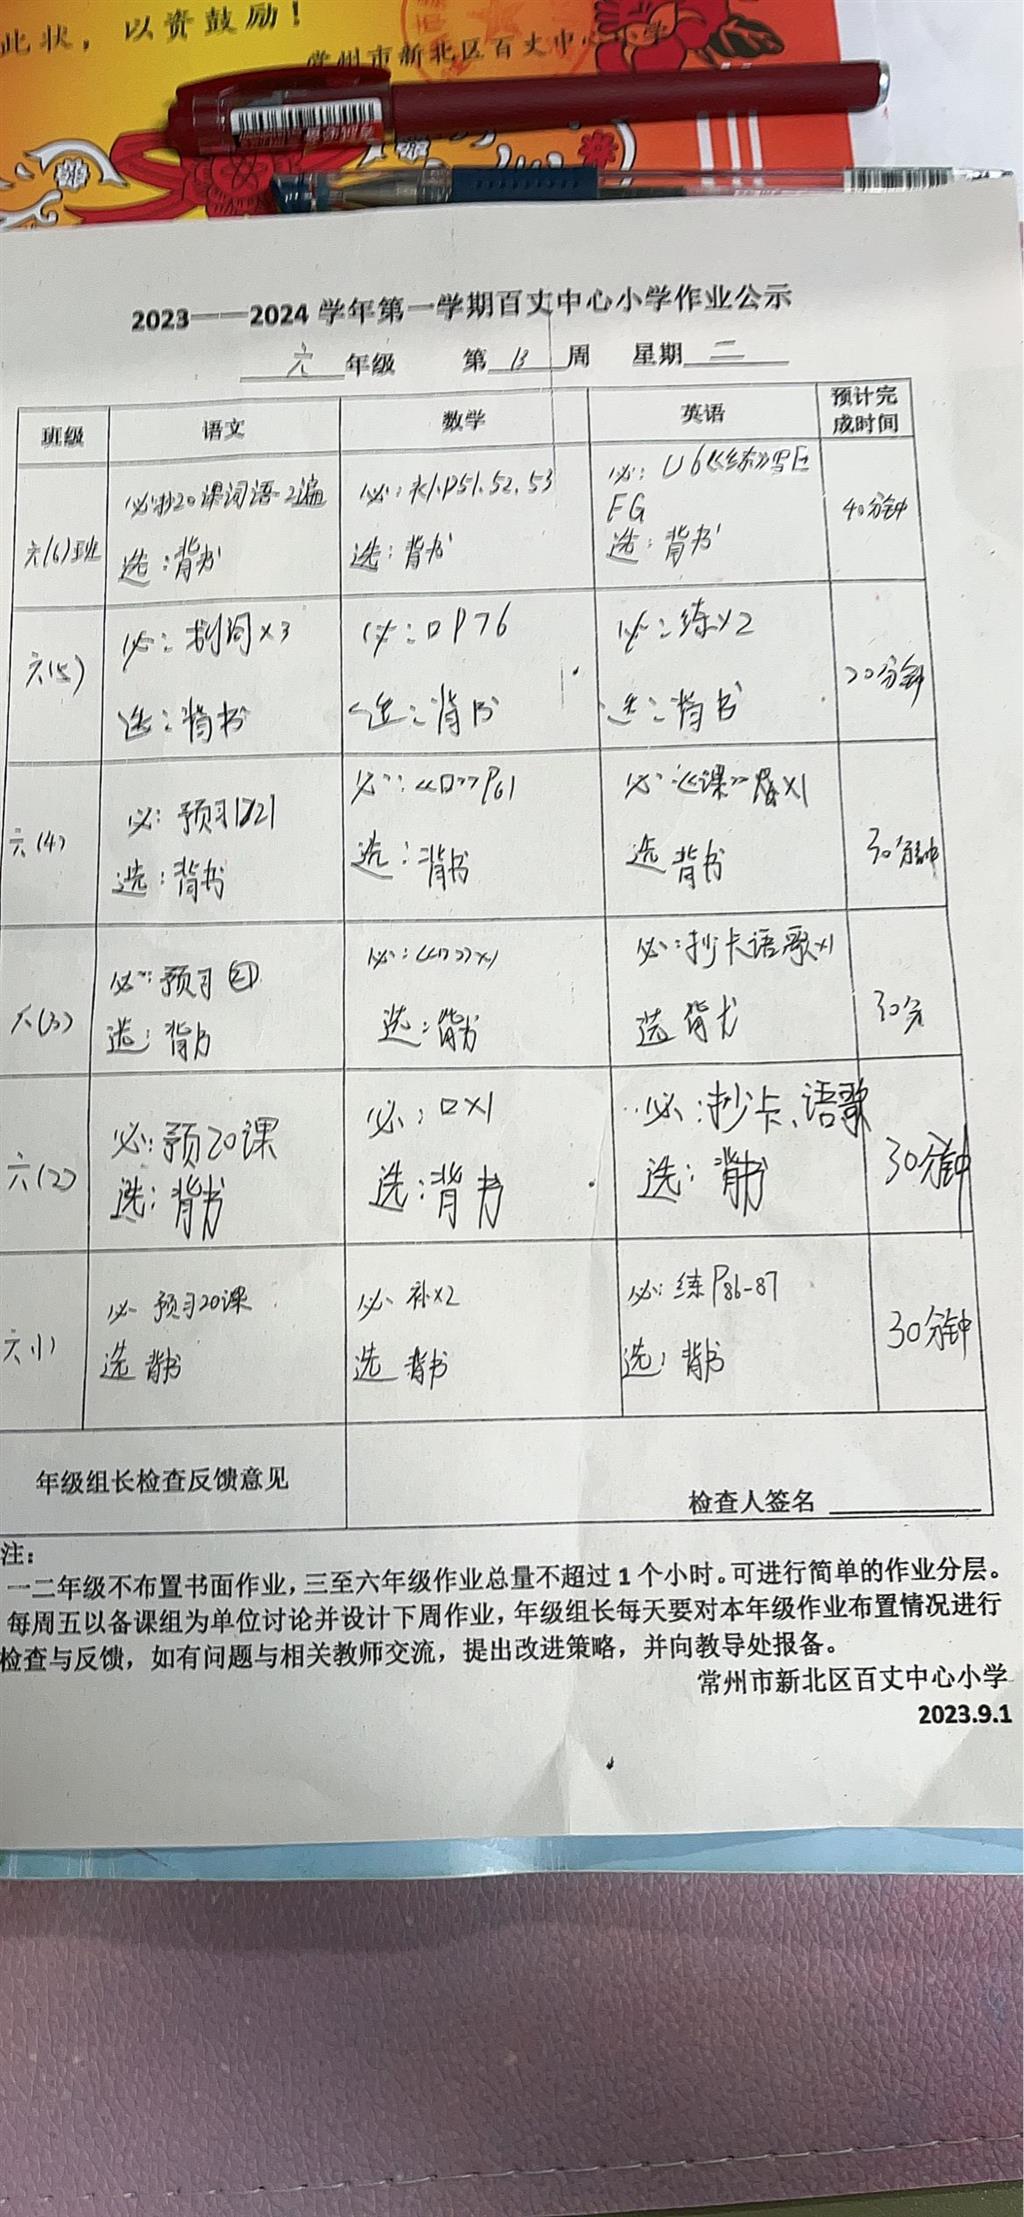 此状，以资鼓励！
常州市新北区百丈中心小学
2023——2024学年第一学期百丈中心小学作业公示
六年级 第13周 星期二
班级 语文 数学 英语 预计完成时间
六(6)班
必:抄20课词语2遍
选:背书
必:补P51.52.53
选:背书
必:U6《练》写E
FG
选:背书
40分钟
六(5)
必:词×3
选:背书
必:口P76
选:背书
必:练×2
选:背书
20分钟
六(4)
必:预习21
选:背书
必:《口》P61
选:背书
必:《课》×1
选 背书
30分钟
六(3)
必:预习21
选:背书
必:《口》×1
选:背书
必:抄卡语歌×1
选 背书
30分
六(2)
必:预20课
选:背书
必:口×1
选:背书
必:抄卡、语歌
选:背书
30分钟
六(1)
必 预习20课
选 背书
必 补×2
选 背书
必:练P86-87
选:背书
30分钟
年级组长检查反馈意见
检查人签名
注：
一二年级不布置书面作业，三至六年级作业总量不超过1个小时。可进行简单的作业分层。
每周五以备课组为单位讨论并设计下周作业，年级组长每天要对本年级作业布置情况进行
检查与反馈，如有问题与相关教师交流，提出改进策略，并向教导处报备。
常州市新北区百丈中心小学
2023.9.1